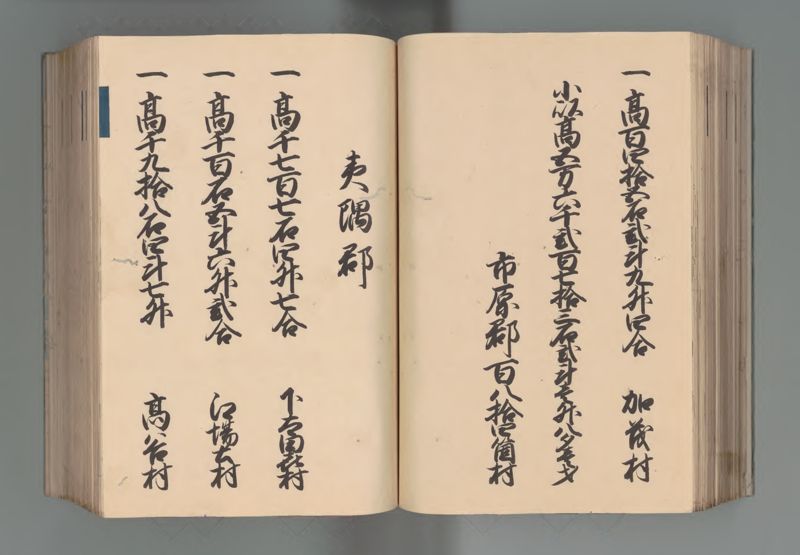 一高百四拾五石弐斗九升四合 加茂村
小以高五万六千弐百七拾三石弐斗七升八夕壱才
市原郡百八拾四箇村
夷隅郡
一高千七百七石四升七合 下布施村
一高千百石五斗六升弐合 江場土村
一高千九拾八石四斗七升 高谷村